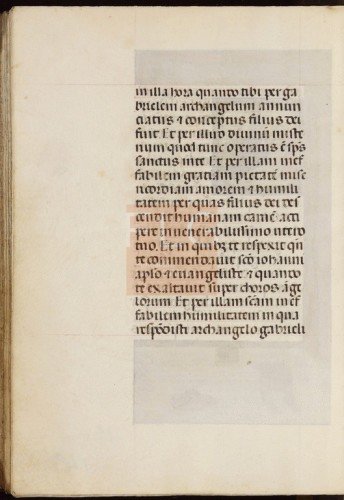 in illa hora quando tibi per ga
brielem archangelum annun
ciatus ⁊ conceptus filius dei
fuit Et per illud diuinũ miste
rium quod tunc operatus ẽ sp̃s
sanctus in te Et per illam inef
fabilem gratiam pietatẽ mise
ricordiam amorem ⁊ humili
tatem per quas filius dei des
cendit humanam carnẽ acci
pere in uenerabilissimo utero
tuo. Et in quibꝫ te respexit qñ
te commendauit sc̃o iohanni
ap̃lo ⁊ euangeliste ⁊ quando
te exaltauit super choros ãge
lorum Et per illam sc̃am inef
fabilem humilitatem in qua
respõdisti archangelo gabrieli